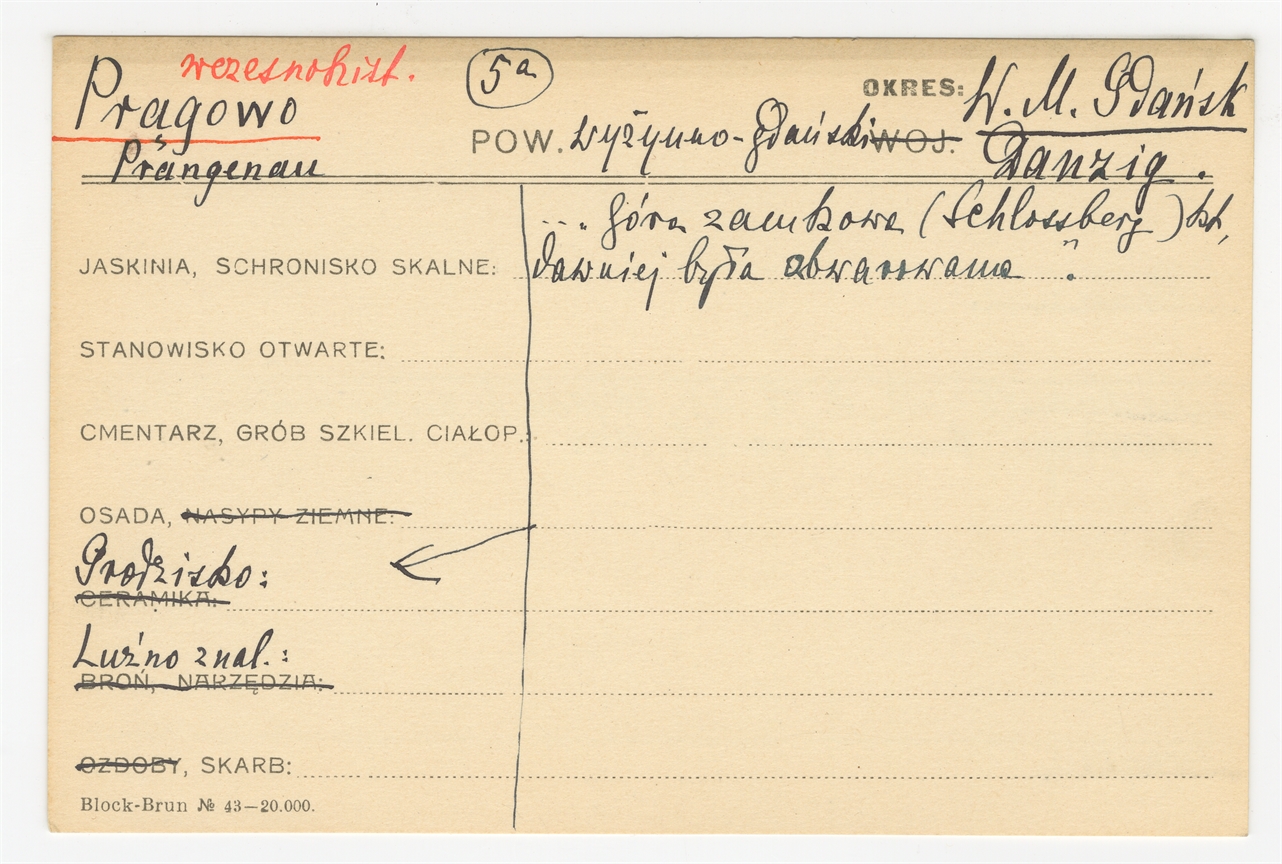 wczesnohist. 5a OKRES: W. M. Gdańsk
Pręgowo
POW. wyżynno-gdański WOJ. Danzig.
Prangenau
... góra zamkowa (Schlossberg) kt,
JASKINIA, SCHRONISKO SKALNE: dawniej była obwarowana".
STANOWISKO OTWARTE:
CMENTARZ, GRÓB SZKIEL. CIAŁOP.:
OSADA, NASYPY ZIEMNE:
Grodzisko:
CERAMIKA:
Luźno znal.:
BROŃ, NARZĘDZIA:
OZDOBY, SKARB:
Block-Brun № 43—20.000.